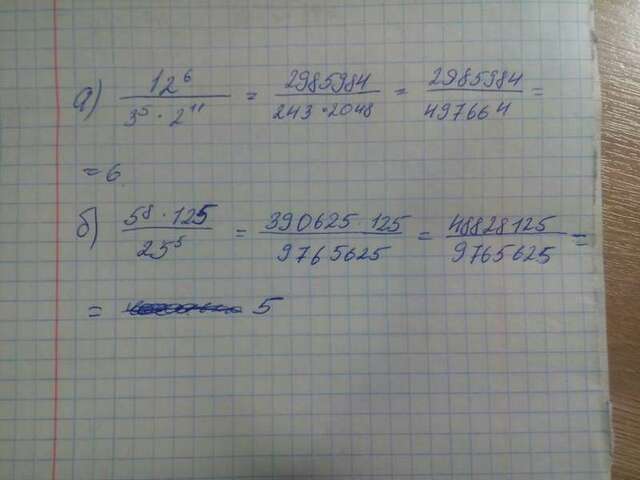 а) 12⁶ / 3⁵ · 2¹¹ = 2985984 / 243 · 2048 = 2985984 / 497664 =
= 6
б) 5⁸ · 125 / 25⁵ = 390625 · 125 / 9765625 = 48828125 / 9765625 =
= 5